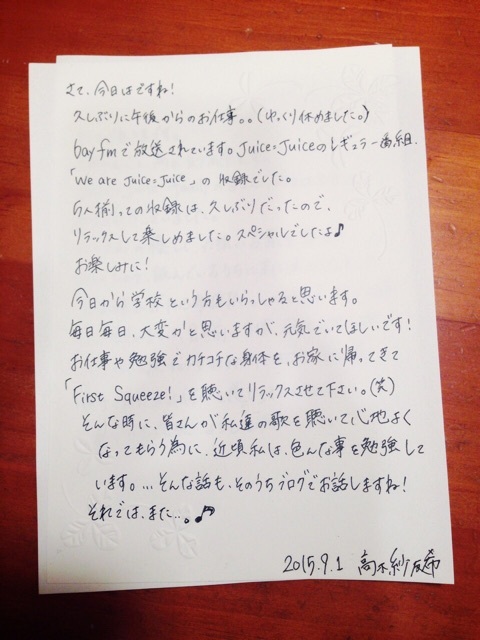 さて、今日はですね!
久しぶりに午後からのお仕事。。(ゆっくり休めました。)
bayfmで放送されています。Juice=Juiceのレギュラー番組、
「We are Juice=Juice」の収録でした。
5人揃っての収録は、久しぶりだったので、
リラックスして楽しめました。スペシャルでしたよ♪
お楽しみに!
今日から学校という方もいらっしゃると思います。
毎日毎日、大変かと思いますが、元気でいてほしいです!
お仕事や勉強でカチコチな身体を、お家に帰ってきて
「First Squeeze!」を聴いてリラックスさせて下さい。(笑)
そんな時に、皆さんが私達の歌を聴いて心地よく
なってもらう為に、近頃私は、色んな事を勉強して
います。...そんな話も、そのうちブログでお話しますね!
それでは、また...。♪
2015.9.1 高木紗友希